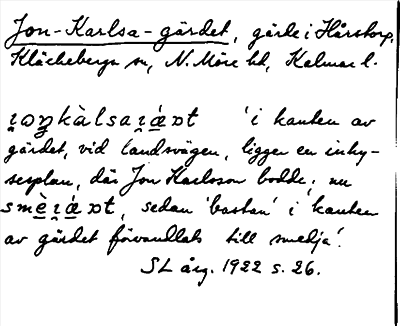 Jon-Karlsa-gärdet, gärde i Hårstorp,
Kläckeberga sn, N. Möre hd, Kalmar l.
'i kanten av
gärdet, vid landsvägen, ligger en inhy-
sesplan, där Jon Karlsson bodde; nu
sedan 'bastan' i kanten
av gärdet förvandlats till smedja'.
SL årg. 1922 s. 26.